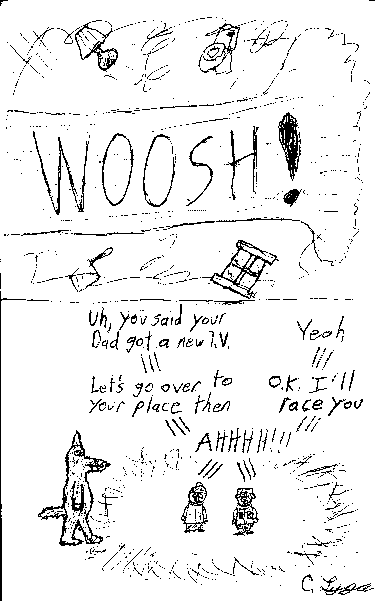 WOOSH!
Uh, you said your
Dad got a new T.V.
Yeah
Let's go over to
your place then
O.K. I'll
race you
AHHHH!!!
C.